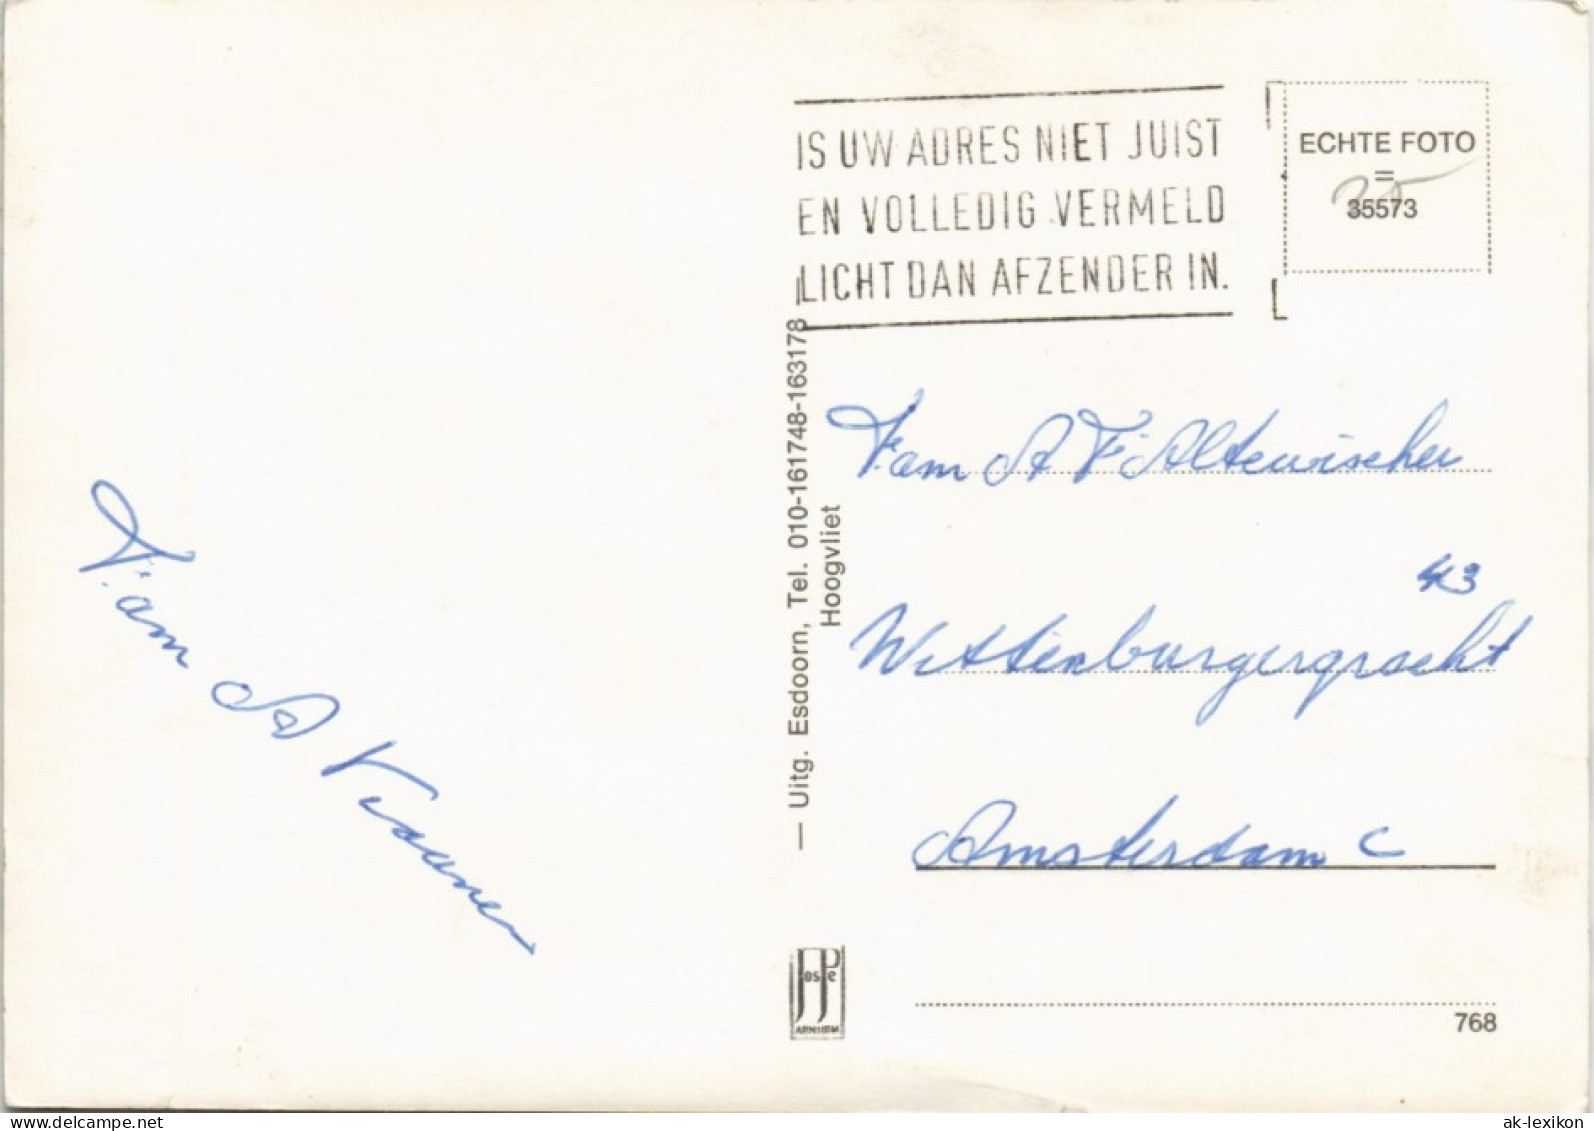 IS UW ADRES NIET JUIST
EN VOLLEDIG VERMELD
LICHT DAN AFZENDER IN.
ECHTE FOTO
=
35573
Fam A F Altewischer
43
Wittenburgergracht
Amsterdam C
Fam A
— Uitg. Esdoorn, Tel. 010-161748-163178
Hoogvliet
JosPe
ARNHEM
768
www.delcampe.net
ak-lexikon